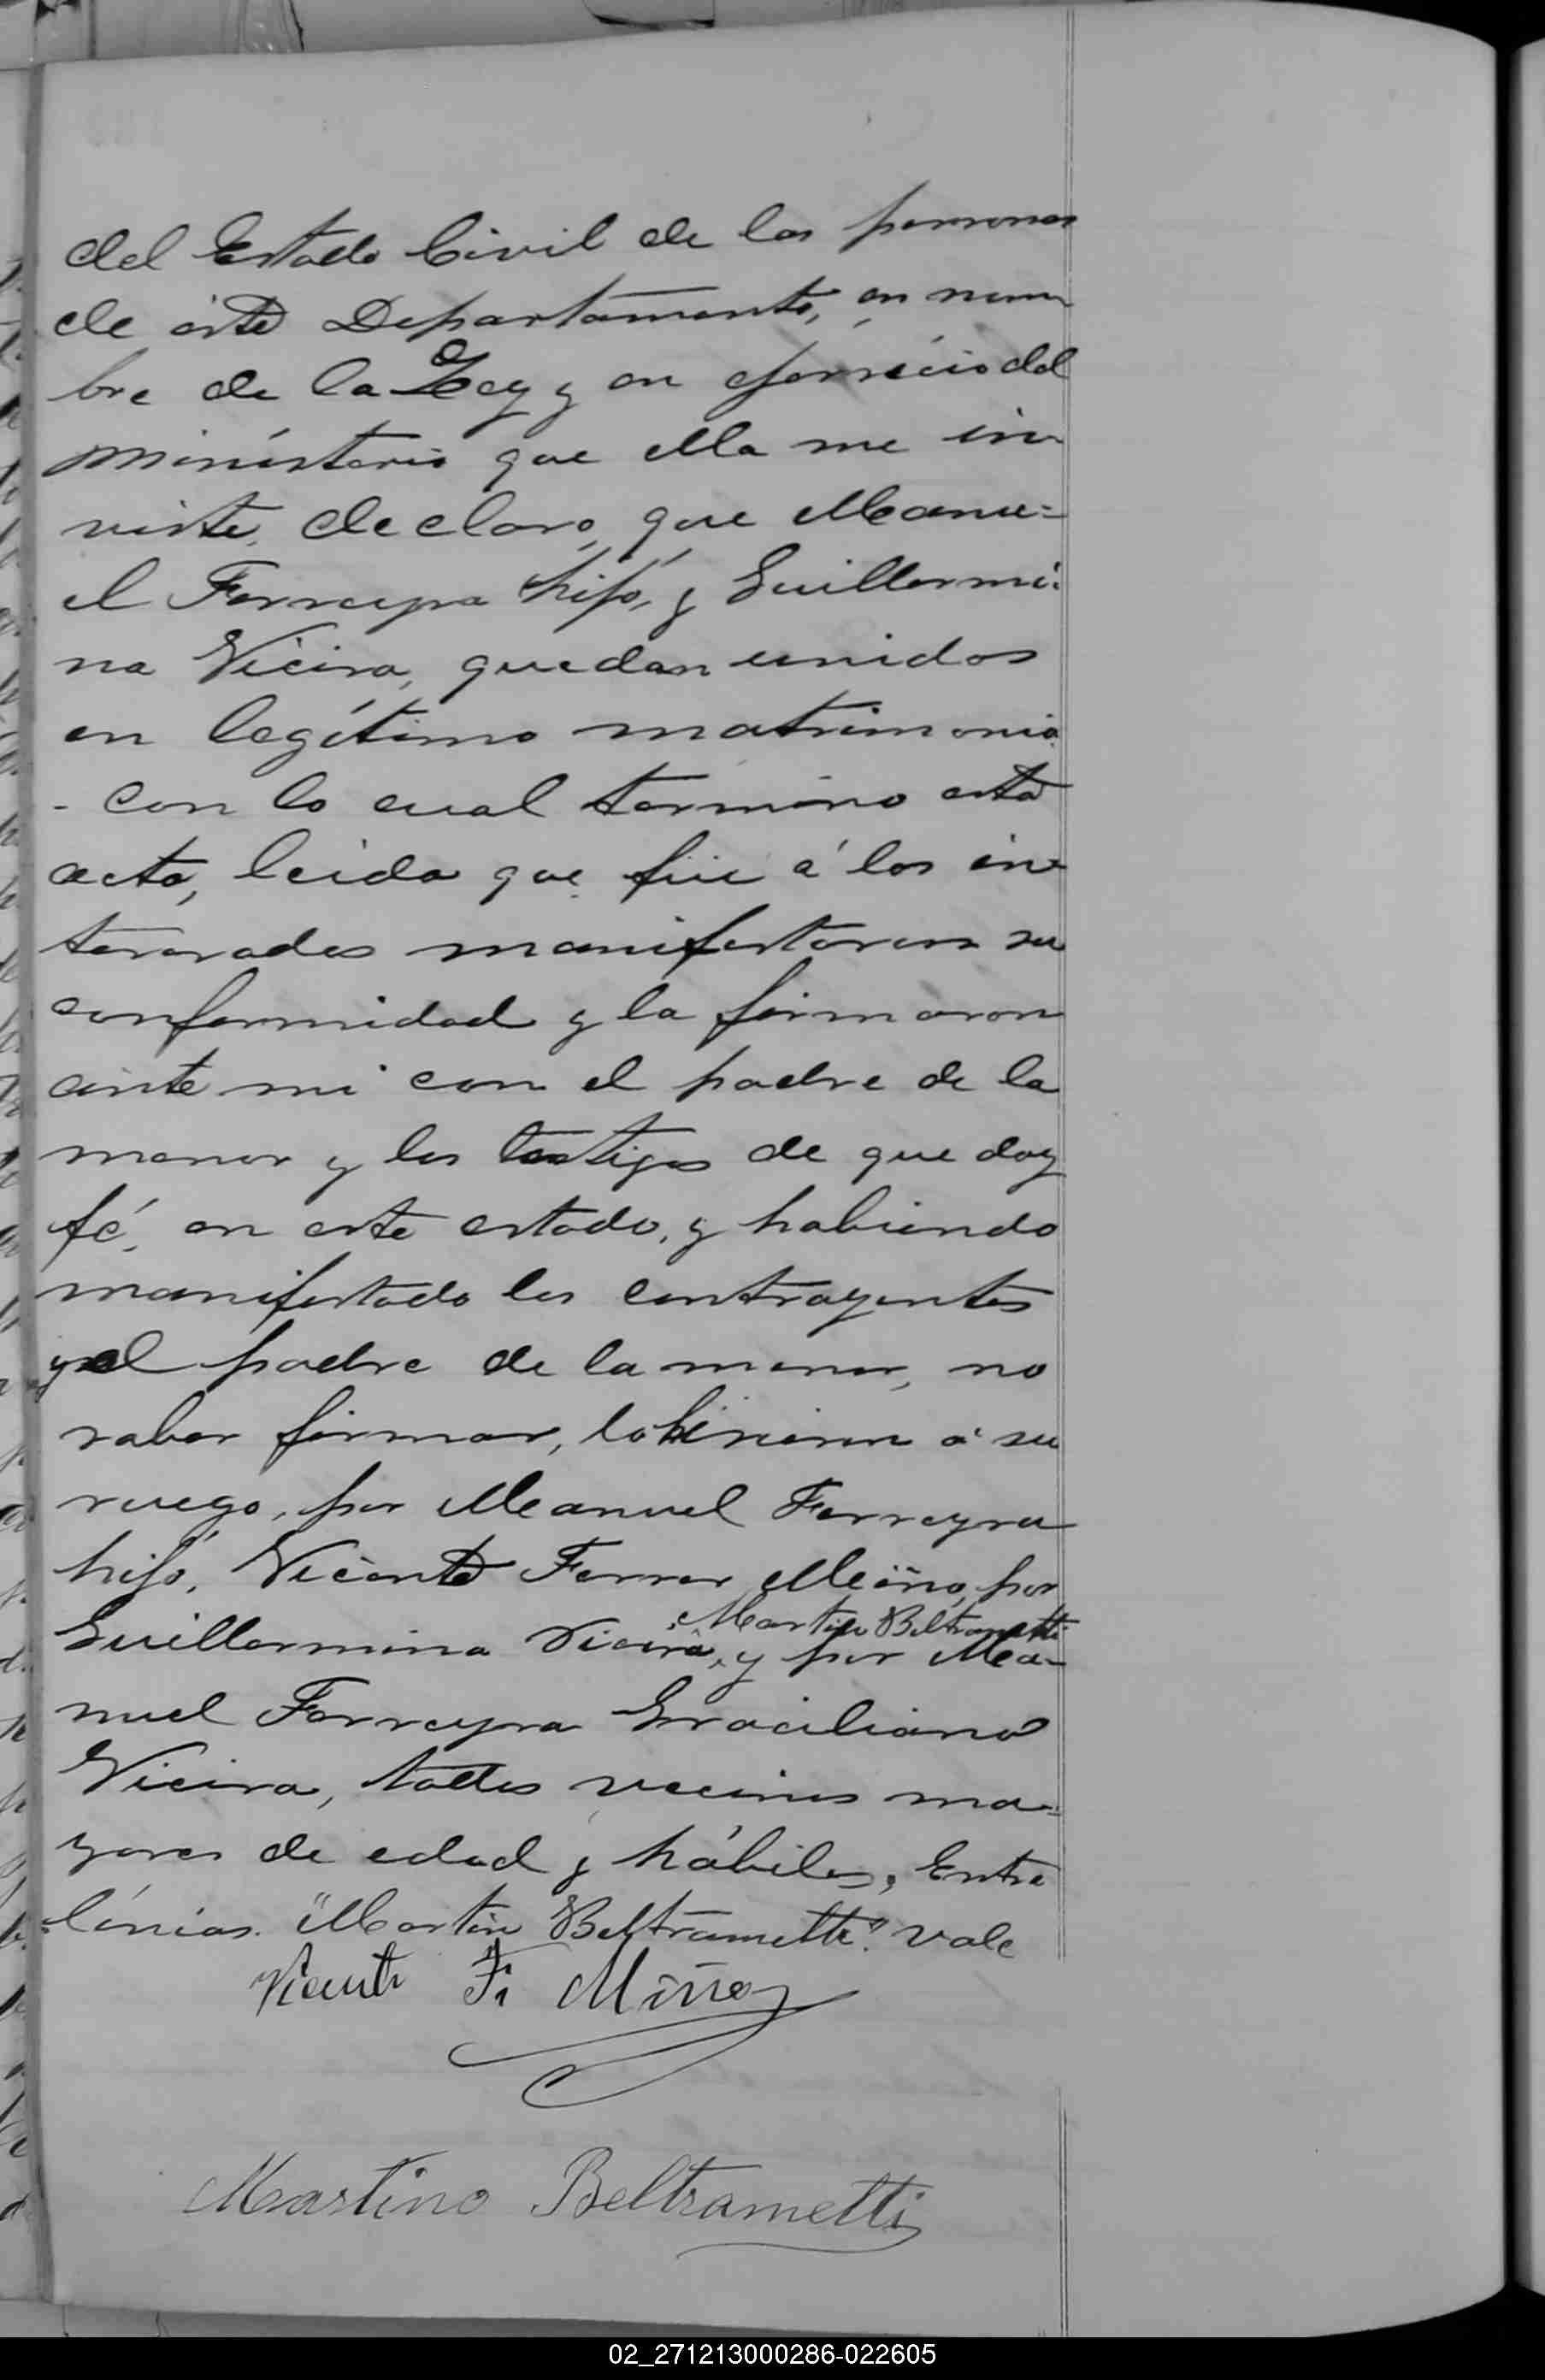 del Estado Civil de las personas
de éste Departamento, en nom
bre de la Ley y en ejercicio del
ministerio que ella me in
viste, declaro, que Manu=
el Ferreyra hijo, y Guillermi=
na Vieira, quedan unidos
en legítimo matrimonio
- Con lo cual termino esta
acta, leida que fué á los in
teresados manifestaron su
conformidad y la firmaron
ante mi con el padre de la
menor y los testigos de que doy
fé, en este estado, y habiendo
manifestado los contrayentes
y el padre de la menor, no
saber firmar, lo hicieron á su
ruego, por Manuel Ferreyra
hijo, Vicente Ferrer Miño, por
Martin Beltrametti
Guillermina Vieira, y por Ma-
nuel Ferreyra Graciliano
Vieira, todos vecinos ma=
yores de edad y hábiles, Entre
línias. "Martin Beltrametti" vale
Vicente F. Miño
Martino Beltrametti
02_271213000286-022605